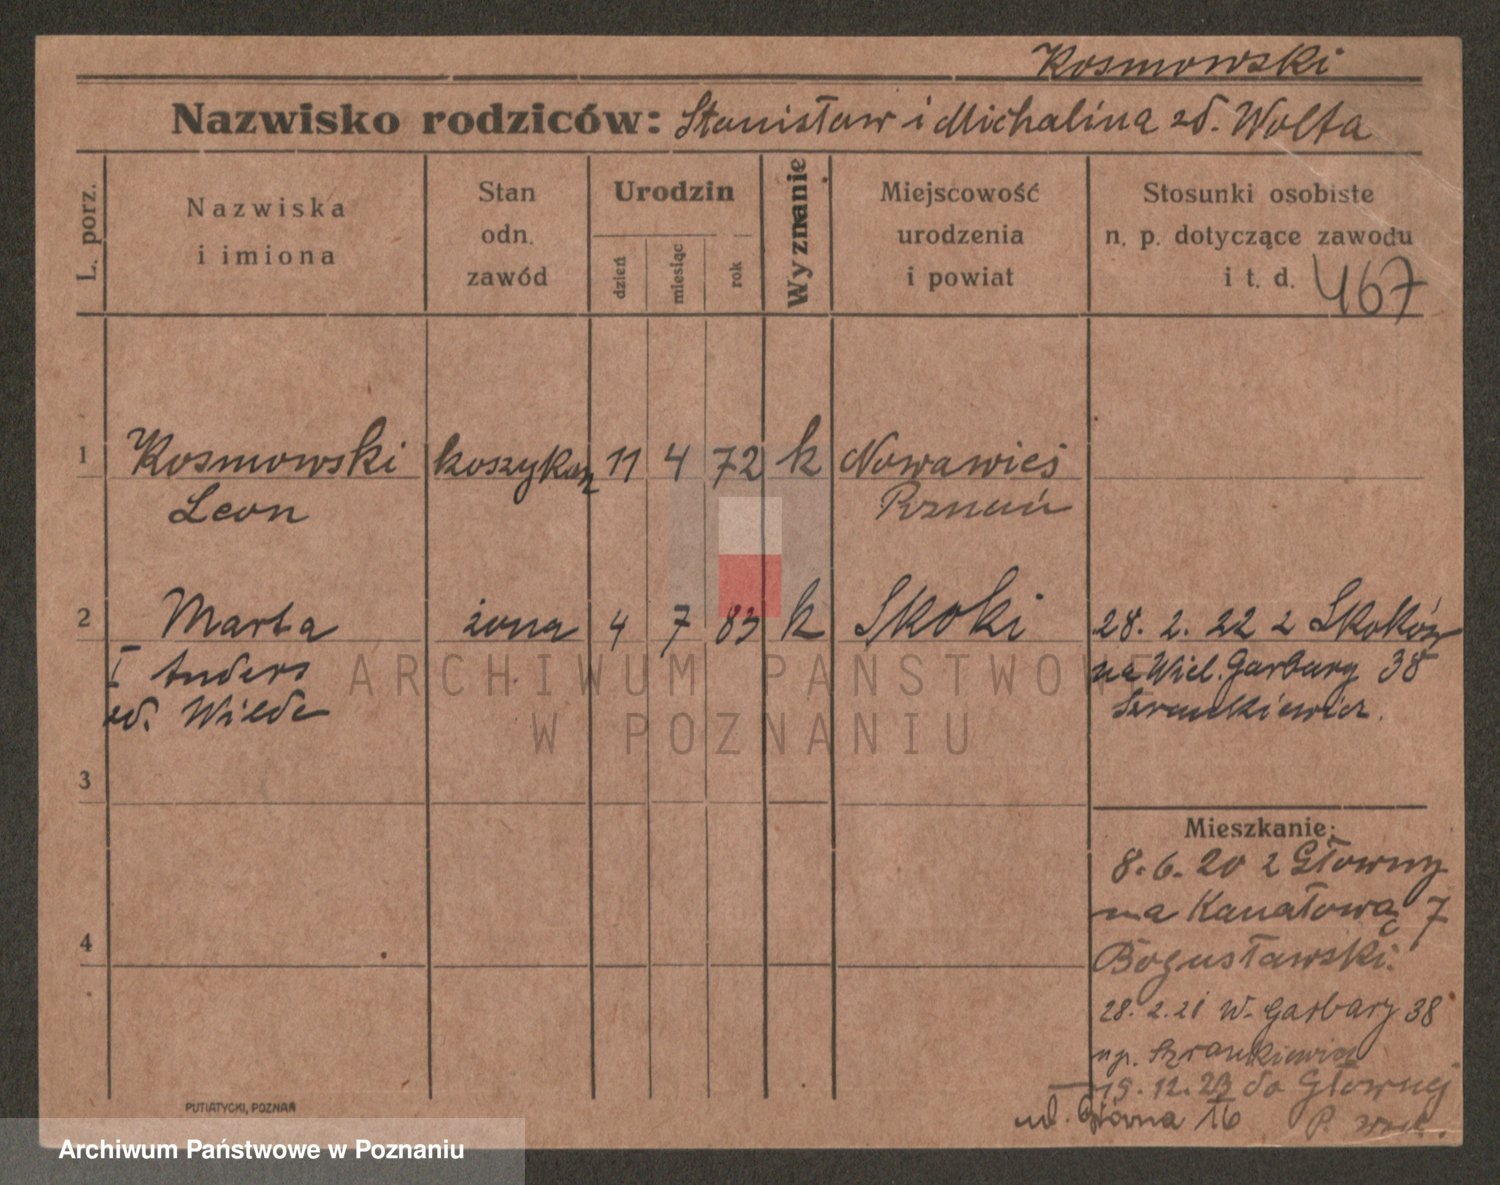 Kosmowski
Nazwisko rodziców: Stanisław i Michalina zd. Wolta
L. porz.
Nazwiska
i imiona
Stan
odn.
zawód
Urodzin
dzień
miesiąc
rok
Wyznanie
Miejscowość
urodzenia
i powiat
Stosunki osobiste
n. p. dotyczące zawodu
i t. d. 467
1 Kosmowski koszykarz 11 4 72 k Nowawieś
Leon Poznań
2 Marta żona 4 7 83 k Skoki 28. 2. 22 z Skoków
I Anders na Wiel. Garbary 38
zd. Wilde Szrankiewicz.
3
Mieszkanie:
8.6.20 z Głowny
na Kanałowa 7
4
Bogusławski.
28.2.21 W. Garbary 38
up. Szrankiewicz
19.12.23 do Głownej
ul. Główna 16 P.
PUTIATYCKI, POZNAŃ
ARCHIWUM PAŃSTWOWE
W POZNANIU
Archiwum Państwowe w Poznaniu